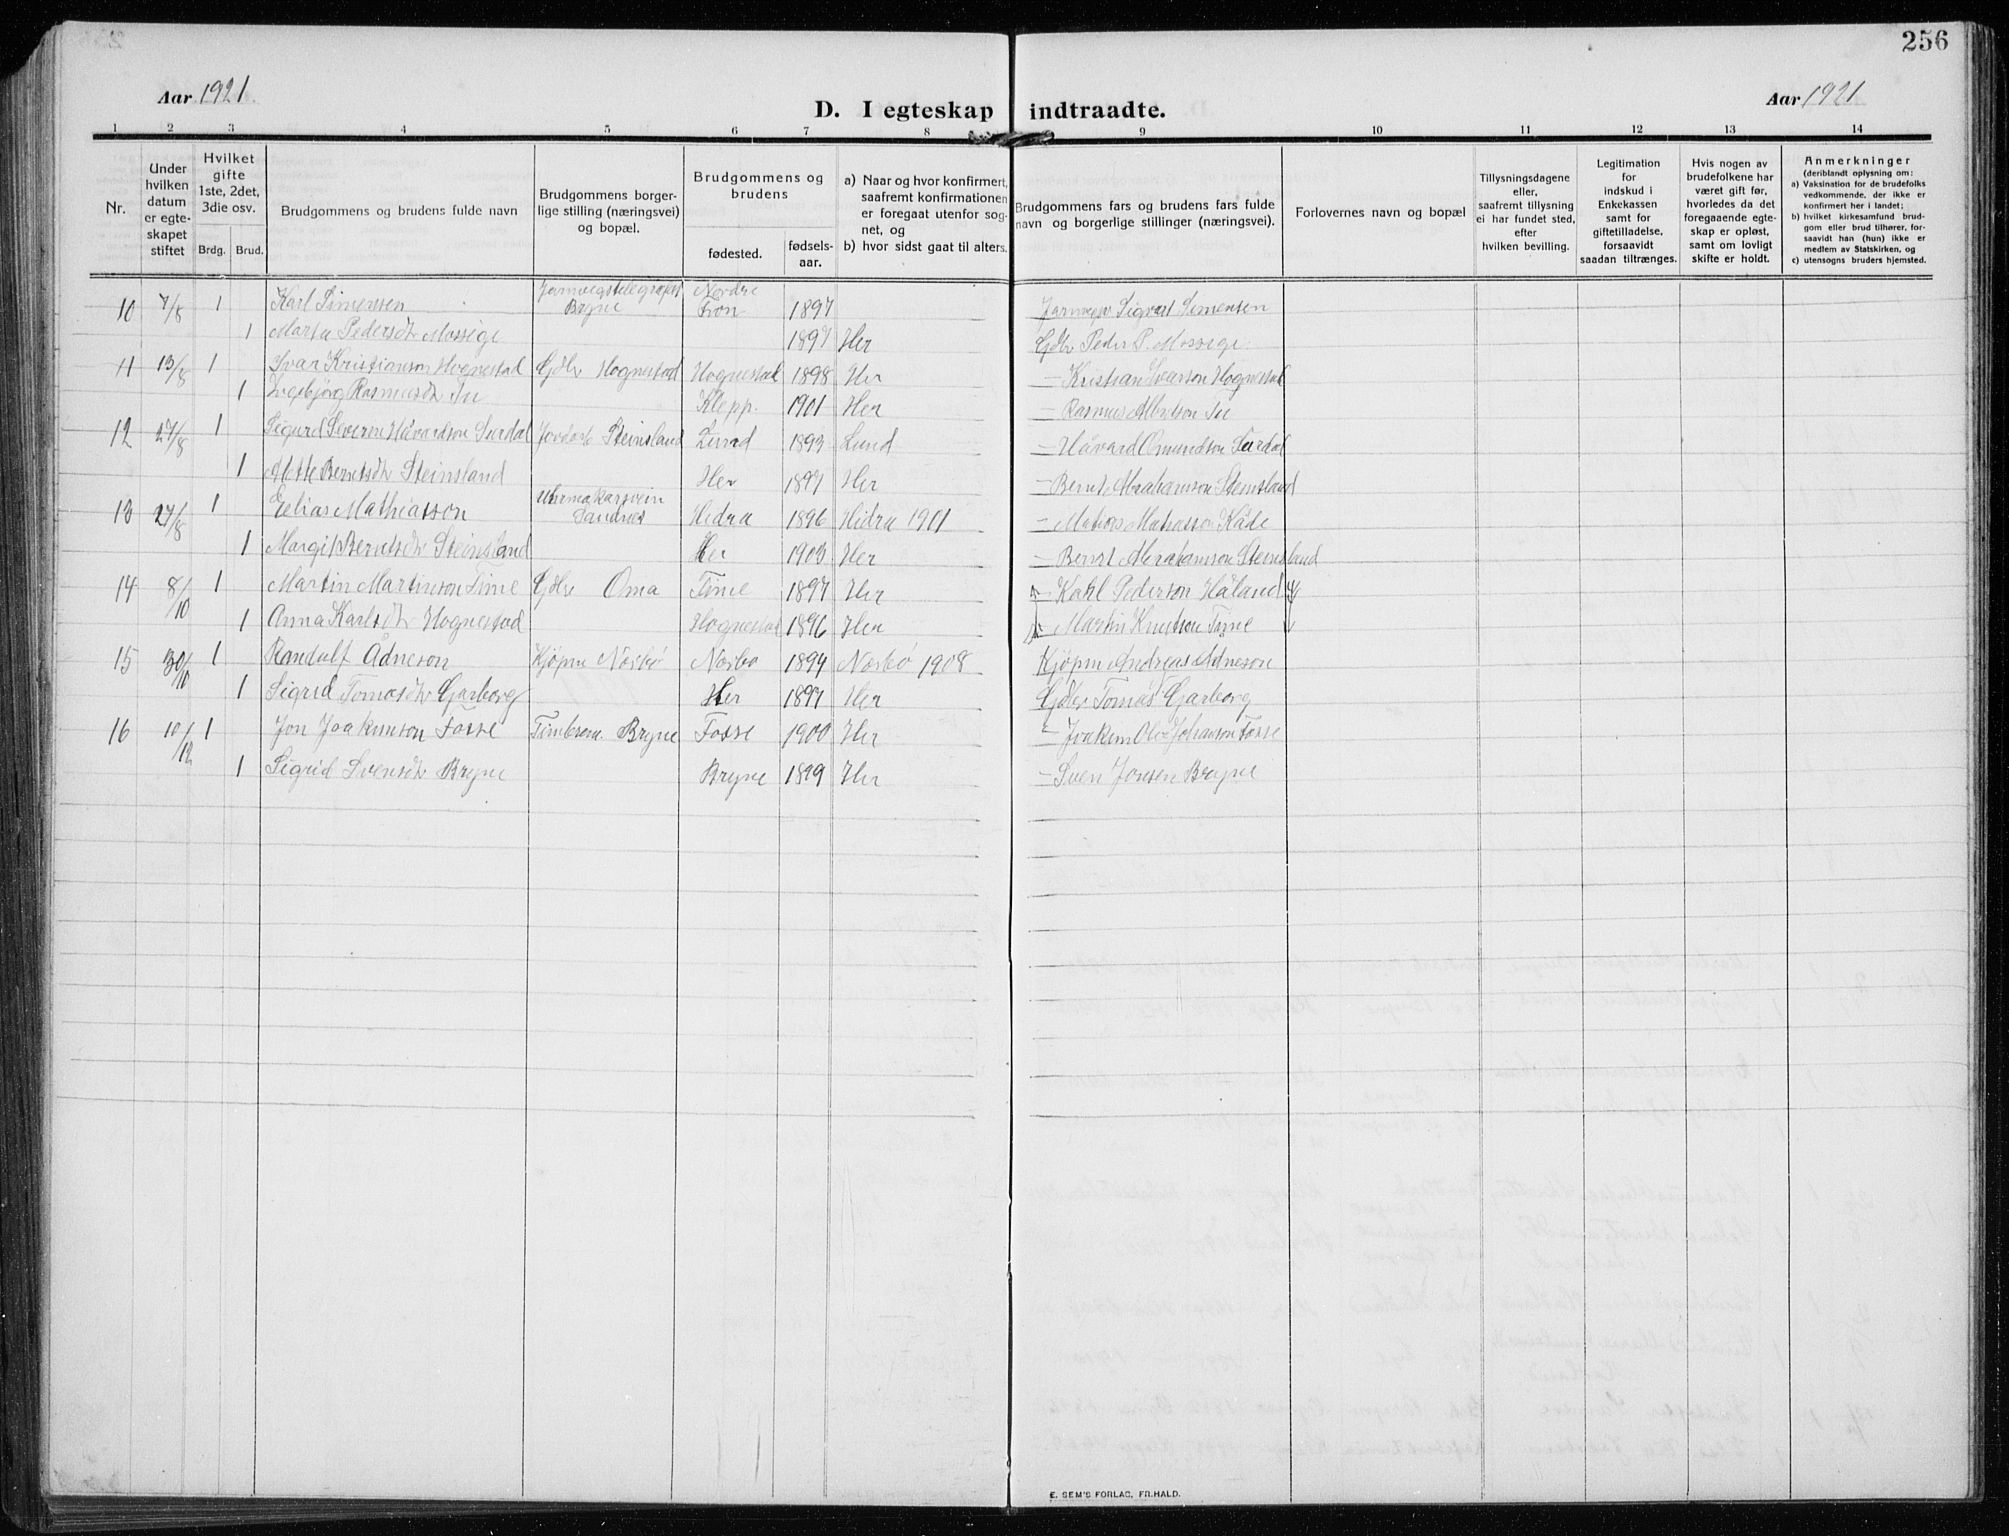 256
Aar 1921.
Aar 1921
D. I egteskap indtraadte.
1 2 3 4 5 6 7 8 9 10 11 12 13 14
Nr.
Under hvilken datum er egteskapet stiftet
Hvilket gifte 1ste, 2det, 3die osv.
Brdg. Brud.
Brudgommens og brudens fulde navn
Brudgommens borgerlige stilling (næringsvei) og bopæl.
Brudgommens og brudens
fødested.
fødselsaar.
a) Naar og hvor konfirmert, saafremt konfirmationen er foregaat utenfor sognet, og
b) hvor sidst gaat til alters.
Brudgommens fars og brudens fars fulde navn og borgerlige stillinger (næringsvei).
Forlovernes navn og bopæl
Tillysningsdagene eller, saafremt tillysning ei har fundet sted, efter hvilken bevilling.
Legitimation for indskud i Enkekassen samt for giftetilladelse, forsaavidt saadan tiltrænges.
Hvis nogen av brudefolkene har været gift før, hvorledes da det foregaaende egteskap er opløst, samt om lovligt skifte er holdt.
Anmerkninger
(deriblandt oplysning om:
a) Vaksination for de brudefolks vedkommende, der ikke er konfirmert her i landet;
b) hvilket kirkesamfund brudgom eller brud tilhører, forsaavidt han (hun) ikke er medlem av Statskirken, og
c) utensogns bruders hjemsted.
10 7/8 1 Karl Simensen Jernvegstelegrafist Bryne Nordre Fron 1897 Jarnvegsv Sigvart Simensen
1 Marta Pedersdtr Mossige 1897 Her Gdbr Peder P. Mossige
11 13/8 1 Ivar Kristianson Hognestad Gdbr Hognestad Hognestad 1898 Her — Kristian Ivarson Hognestad
1 Ingebjørg Rasmusdtr Tu Klepp. 1901 Her — Rasmus Albertson Tu
12 27/8 1 Sigurd Severin Håvardson Surdal Jordarb Steinsland Lund 1893 Lund — Håvard Omundson Surdal
1 Mette Berntsdtr Steinsland Her 1897 Her — Bernt Abrahamson Steinsland
13 27/8 1 Elias Mathiasson Uhrmakarsvein Sandnes Hidra 1896 Hidra 1901 — Matias Matiasson Råde
1 Margit Berntsdtr Steinsland Her 1903 Her — Bernt Abrahamson Steinsland
14 8/10 1 Martin Martinson Time Gdbr Oma Time 1897 Her — Karl Pederson Håland
1 Anna Karlsdtr Hognestad Hognestad 1896 Her — Martin Knutson Time
15 30/10 1 Randulf Ådneson Kjøpm Nærbø Nærbø 1894 Nærbø 1908 Kjøpm Andreas Adneson
1 Sigrid Tomasdtr Garborg Her 1897 Her Gdbr Tomas Garborg
16 10/12 1 Jon Joakimson Fosse Timbrem. Bryne Fosse 1900 Her — Joakim Ole Johanson Fosse
1 Sigrid Svensdtr Bryne Bryne 1899 Her — Sven Jonsen Bryne
E. SEM'S FORLAG, FR.HALD.